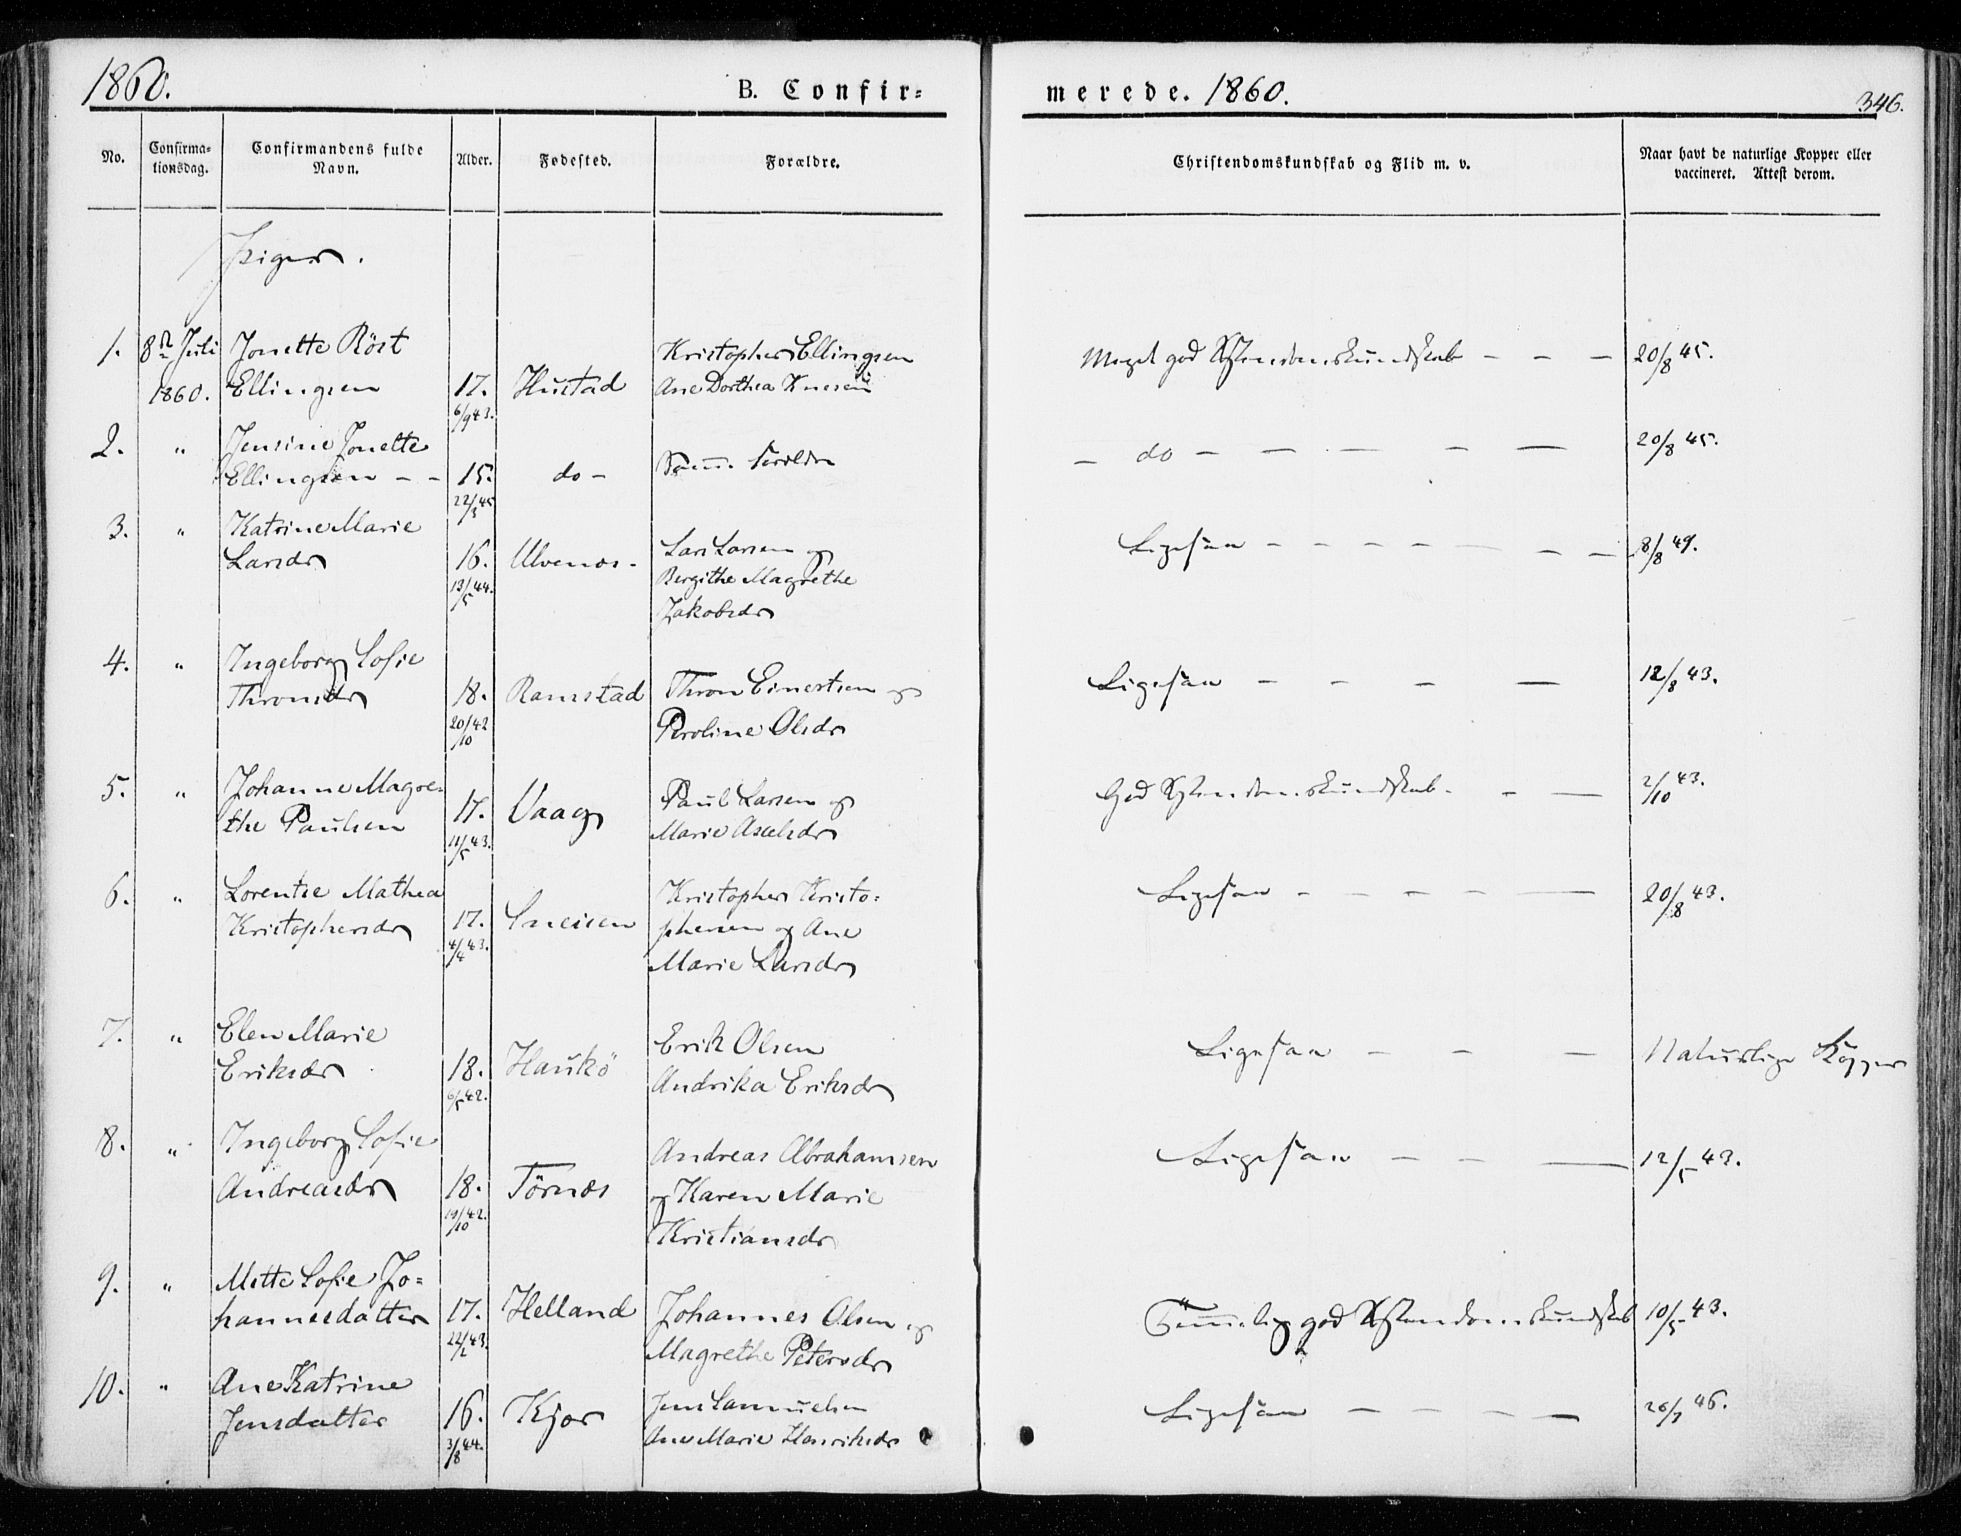 1860. B. Confir= merede. 1860. 346.
No. Confirma= Confirmandens fulde Alder. Fødested. Forældre. Christendomskundskab og Flid m. v. Naar havt de naturlige Kopper eller
tionsdag. Navn. vaccineret. Attest derom.
Piger.
1. 8de Juli Jonette Röst Kristopher Ellingsen Meget god Kristendomskundskab - - - 20/8 45.
1860. Ellingsen 17. Hustad Ane Dorthea
6/9 43.
2. " Jensine Jonette - do - - - - - 20/8 45.
Ellingsen - - 15. do - Samme Forældre
22/3 45
3. " Katrine Marie
Larsdr 16. Ulvenæs - Lars Larsen og Ligesaa - - - - - - - 8/8 49.
13/5 44. Bergithe Magrethe
Jakobsdr
4. " Ingeborg Sofie
Thronsdr 18. Ramstad Thron Einertsen og Ligesaa - - - - 12/8 43.
20/10 42 Peroline Olsdr
5. " Johanne Magre= Paul Larsen og God Kristendomskundskab - - - 2/10 43.
the Paulsen 17. Vaag Marie Axelsdr
11/5 43.
6. " Lorentse Mathea Kristopher Kristo= Ligesaa - - - - - - 20/8 43.
Kristophersdr 17. Sneisen phersen og Ane
4/4 43. Marie Larsdr
7. " Elen Marie Erik Olsen Ligesaa - - - Naturlige Kopper
Eriksdr 18. Haukö Andrika Eriksdr
6/5 42.
8. " Ingeborg Sofie Andreas Abrahamsen Ligesaa - - - 12/5 43.
Andreasdr 18. Törnæs og Karen Marie
19/10 42. Kristiansdr
9. " Mette Sofie Jo=
hannesdatter 17. Helland Johannes Olsen og Temmelig god Kristendomskundskab 10/5 43.
22/2 43. Magrethe Petersdr
10. " Ane Katrine
Jensdatter 16. Kjør Jens Samuelsen Ligesaa - - - - 26/7 46.
3/8 44. Ane Marie Henriksdr